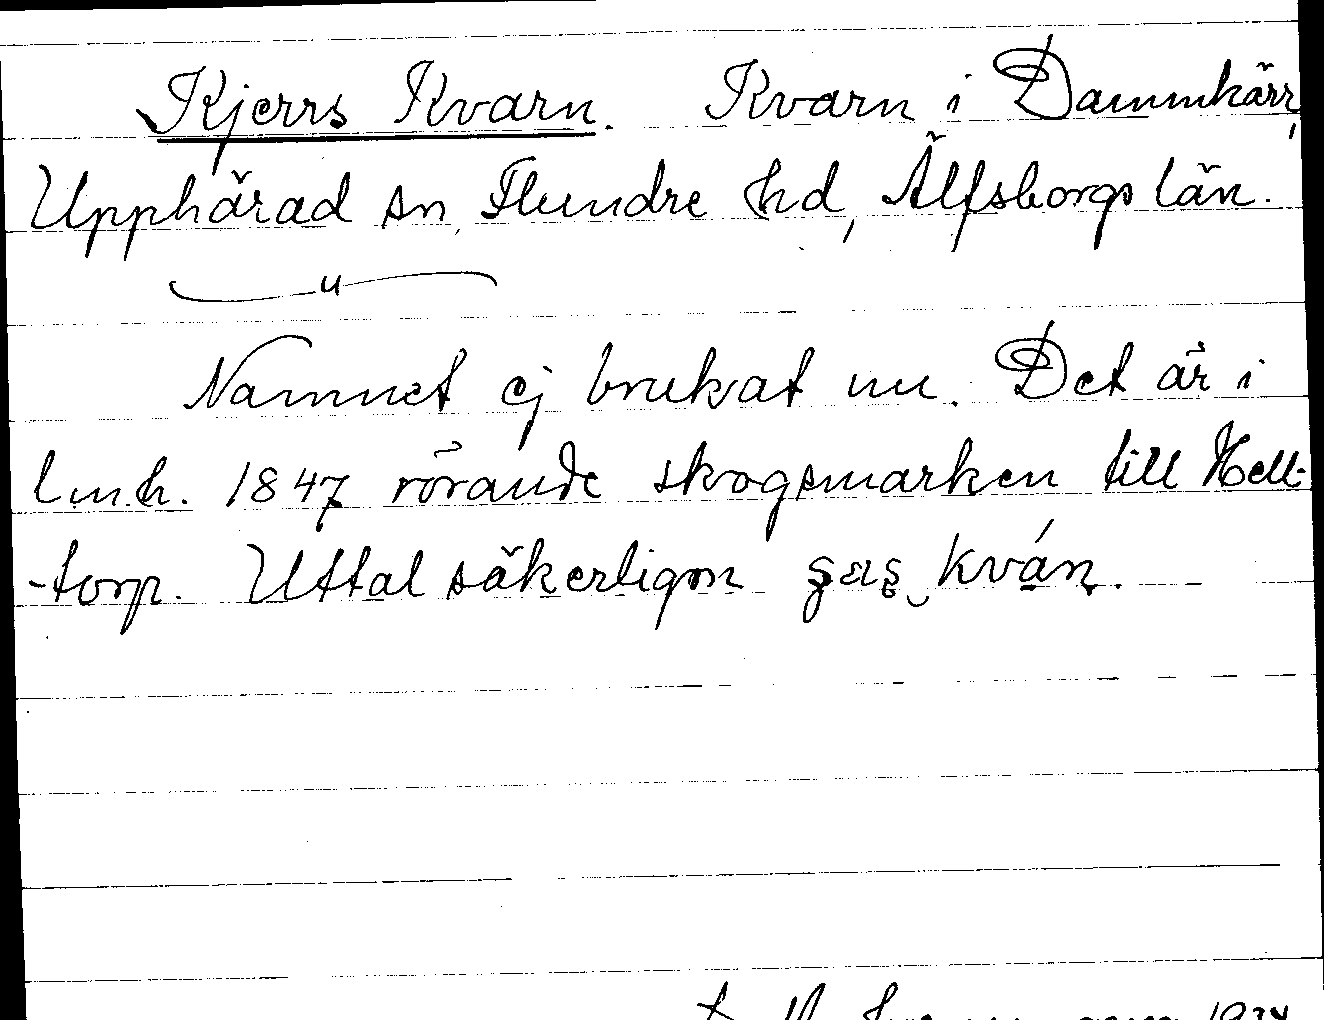 Kjerrs Kvarn. Kvarn i Dammkärr,
Upphärad sn, Flundre hd, Älfsborgs län.
Namnet ej brukat nu. Det är i
lm.h. 1847 rörande skogsmarken till Hell-
-torp. Uttal säkerligen kván.